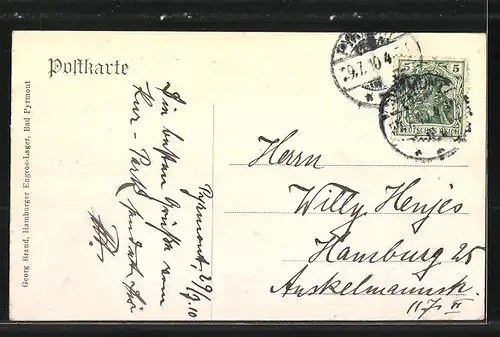 Postkarte
Georg Brand, Hamburger Engros-Lager, Bad Pyrmont
Pyrmont, 29/7. 10
Die besten Grüße vom
Kur-Park sendet Dir
29.7.10.4
5 5
DEUTSCHES REICH
PYRMONT
Herrn
Willy Henjes
Hamburg 25
Anckelmannstr.
117 II